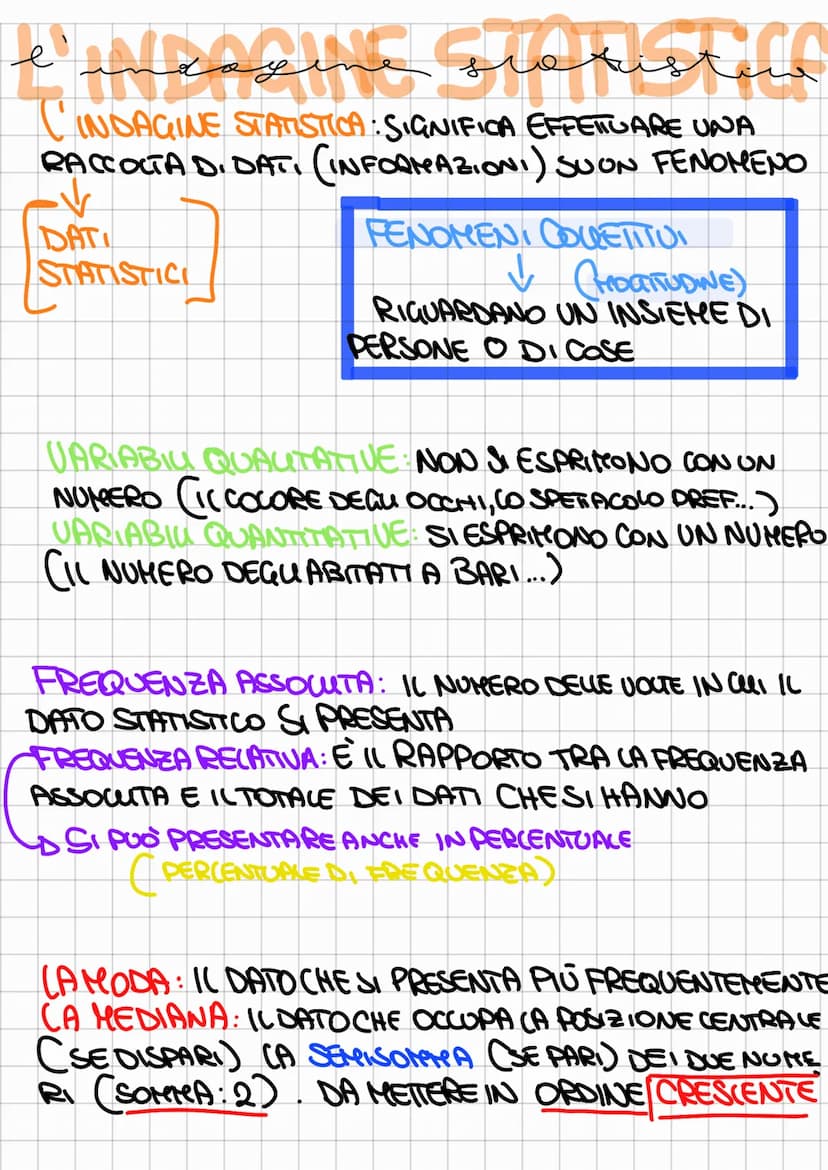 L'INDAGINE STATISTICA
l'indagine statistica
L'INDAGINE STATISTICA: SIGNIFICA EFFETTUARE UNA
RACCOLTA DI DATI (INFORMAZIONI) SU UN FENOMENO
DATI
STATISTICI
FENOMENI COLLETTIVI
(MOLTITUDINE)
RIGUARDANO UN INSIEME DI
PERSONE O DI COSE
VARIABILI QUALITATIVE: NON SI ESPRIMONO CON UN
NUMERO (IL COLORE DEGLI OCCHI, LO SPETACOLO PREF...)
VARIABILI QUANTITATIVE: SI ESPRIMONO CON UN NUMERO
(IL NUMERO DEGLI ABITATI A BARI...)
FREQUENZA ASSOLUTA: IL NUMERO DELLE VOLTE IN CUI IL
DATO STATISTICO SI PRESENTA
FREQUENZA RELATIVA: È IL RAPPORTO TRA LA FREQUENZA
ASSOLUTA E IL TOTALE DEI DATI CHE SI HANNO
SI PUÒ PRESENTARE ANCHE IN PERCENTUALE
(PERCENTUALE DI FREQUENZA)
LA MODA: IL DATO CHE SI PRESENTA PIÙ FREQUENTEMENTE
LA MEDIANA: IL DATO CHE OCCUPA LA POSIZIONE CENTRALE
(SE DISPARI) LA SEMISOMMA (SE PARI) DEI DUE NUME
RI (SOMMA:2). DA METTERE IN ORDINE CRESCENTE